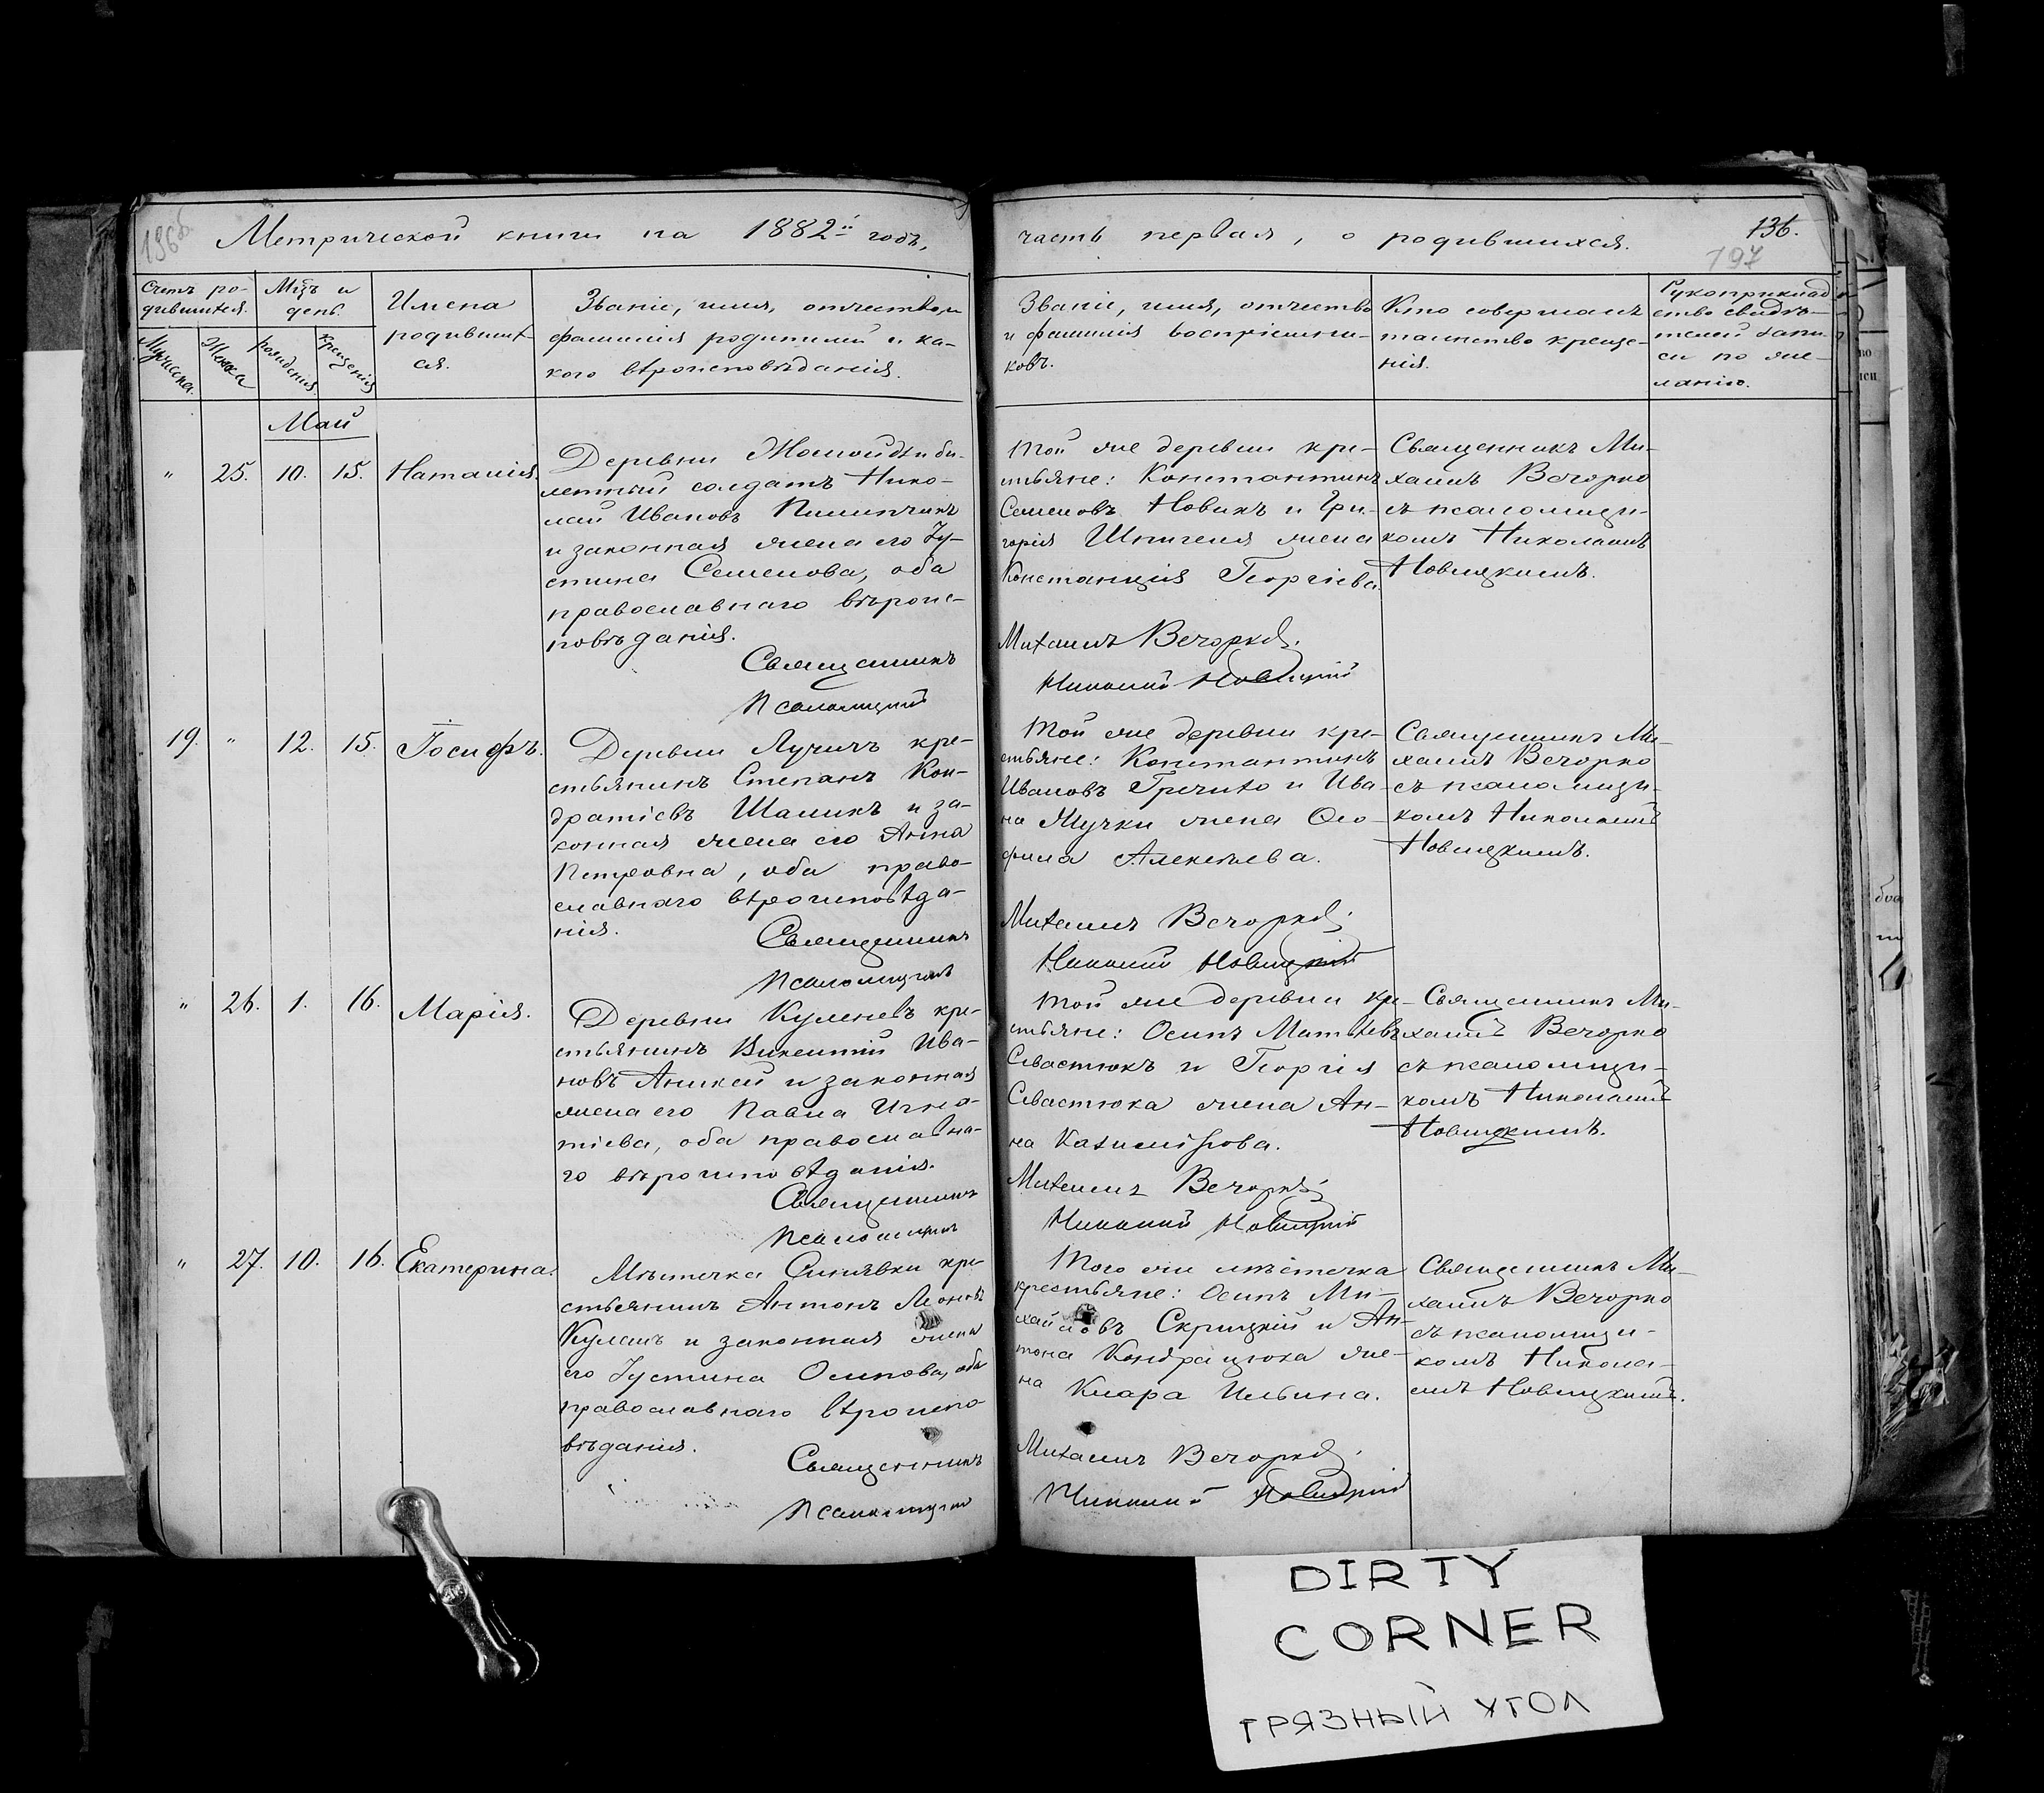 Метрической книги на 1882й годъ,
часть первая, о родившихся.
136.
197
Счетъ ро-
дившихся.
Мужеска.
Женска
Мѣцъ и
день.
рожденія.
крещенія
Имена
родивших-
ся.
Званіе, имя, отчество, и
фамилія родителей и ка-
кого вѣроисповѣданія.
Званіе, имя, отчество
и фамилія воспріемни-
ковъ.
Кто совершалъ
таинство креще-
нія.
Рукоприклад
ство свидѣ-
телей запи-
си по же-
ланію.
Май
" 25. 10. 15. Наталія.
Деревни Жомойдь би-
летный солдатъ Нико-
лай Ивановъ Пилипчикъ
и законная жена его Іу-
стина Семенова, оба
православнаго вѣроис-
повѣданія.
Священникъ
Псаломщикъ
Той же деревни кре-
стьяне: Константинъ
Семеновъ Новикъ и Гри-
горія Шпигеля жена
Констанція Георгіева.
Михаилъ Вечорко.
Николай Новицкій
Священникъ Ми-
хаилъ Вечорко
съ псаломщи-
комъ Николаемъ
Новицкимъ.
19. " 12. 15. Іосифъ.
Деревни Лучичъ кре-
стьянинъ Степанъ Кон-
дратіевъ Шаликъ и за-
конная жена его Анна
Петровна, оба право-
славнаго вѣроисповѣда-
нія.
Священникъ
Псаломщикъ
Той же деревни кре-
стьяне: Константинъ
Ивановъ Гречихо и Ива-
на Жучки жена Ѳео-
фила Алексѣева.
Михаилъ Вечорко.
Николай Новицкій
Священникъ Ми-
хаилъ Вечорко
съ псаломщи-
комъ Николаемъ
Новицкимъ.
" 26. 1. 16. Марія.
Деревни Куленевъ кре-
стьянинъ Викентій Ива-
новъ Аникей и законная
жена его Павла Игна-
тіева, оба православна-
го вѣроисповѣданія.
Священникъ
Псаломщикъ
Той же деревни кре-
стьяне: Осипъ Матѣевъ
Севастюкъ и Георгія
Севастюка жена Ан-
на Казимірова.
Михаилъ Вечорко
Николай Новицкій
Священникъ Ми-
хаилъ Вечорко
съ псаломщи-
комъ Николаемъ
Новицкимъ.
" 27. 10. 16. Екатерина.
Мѣстечка Синявки кре-
стьянинъ Антонъ Леоновъ
Кулешъ и законная жена
его Іустина Осипова, оба
православнаго вѣроиспо-
вѣданія.
Священникъ
Псаломщикъ
Того же мѣстечка
крестьяне: Осипъ Ми-
хайловъ Скрицкій и Ан-
тона Кондрацюка же-
на Клара Ильина.
Михаилъ Вечорко.
Николай Новицкій
Священникъ Ми-
хаилъ Вечорко
съ псаломщи-
комъ Никола-
емъ Новицкимъ.
DIRTY
CORNER
ГРЯЗНЫЙ УГОЛ